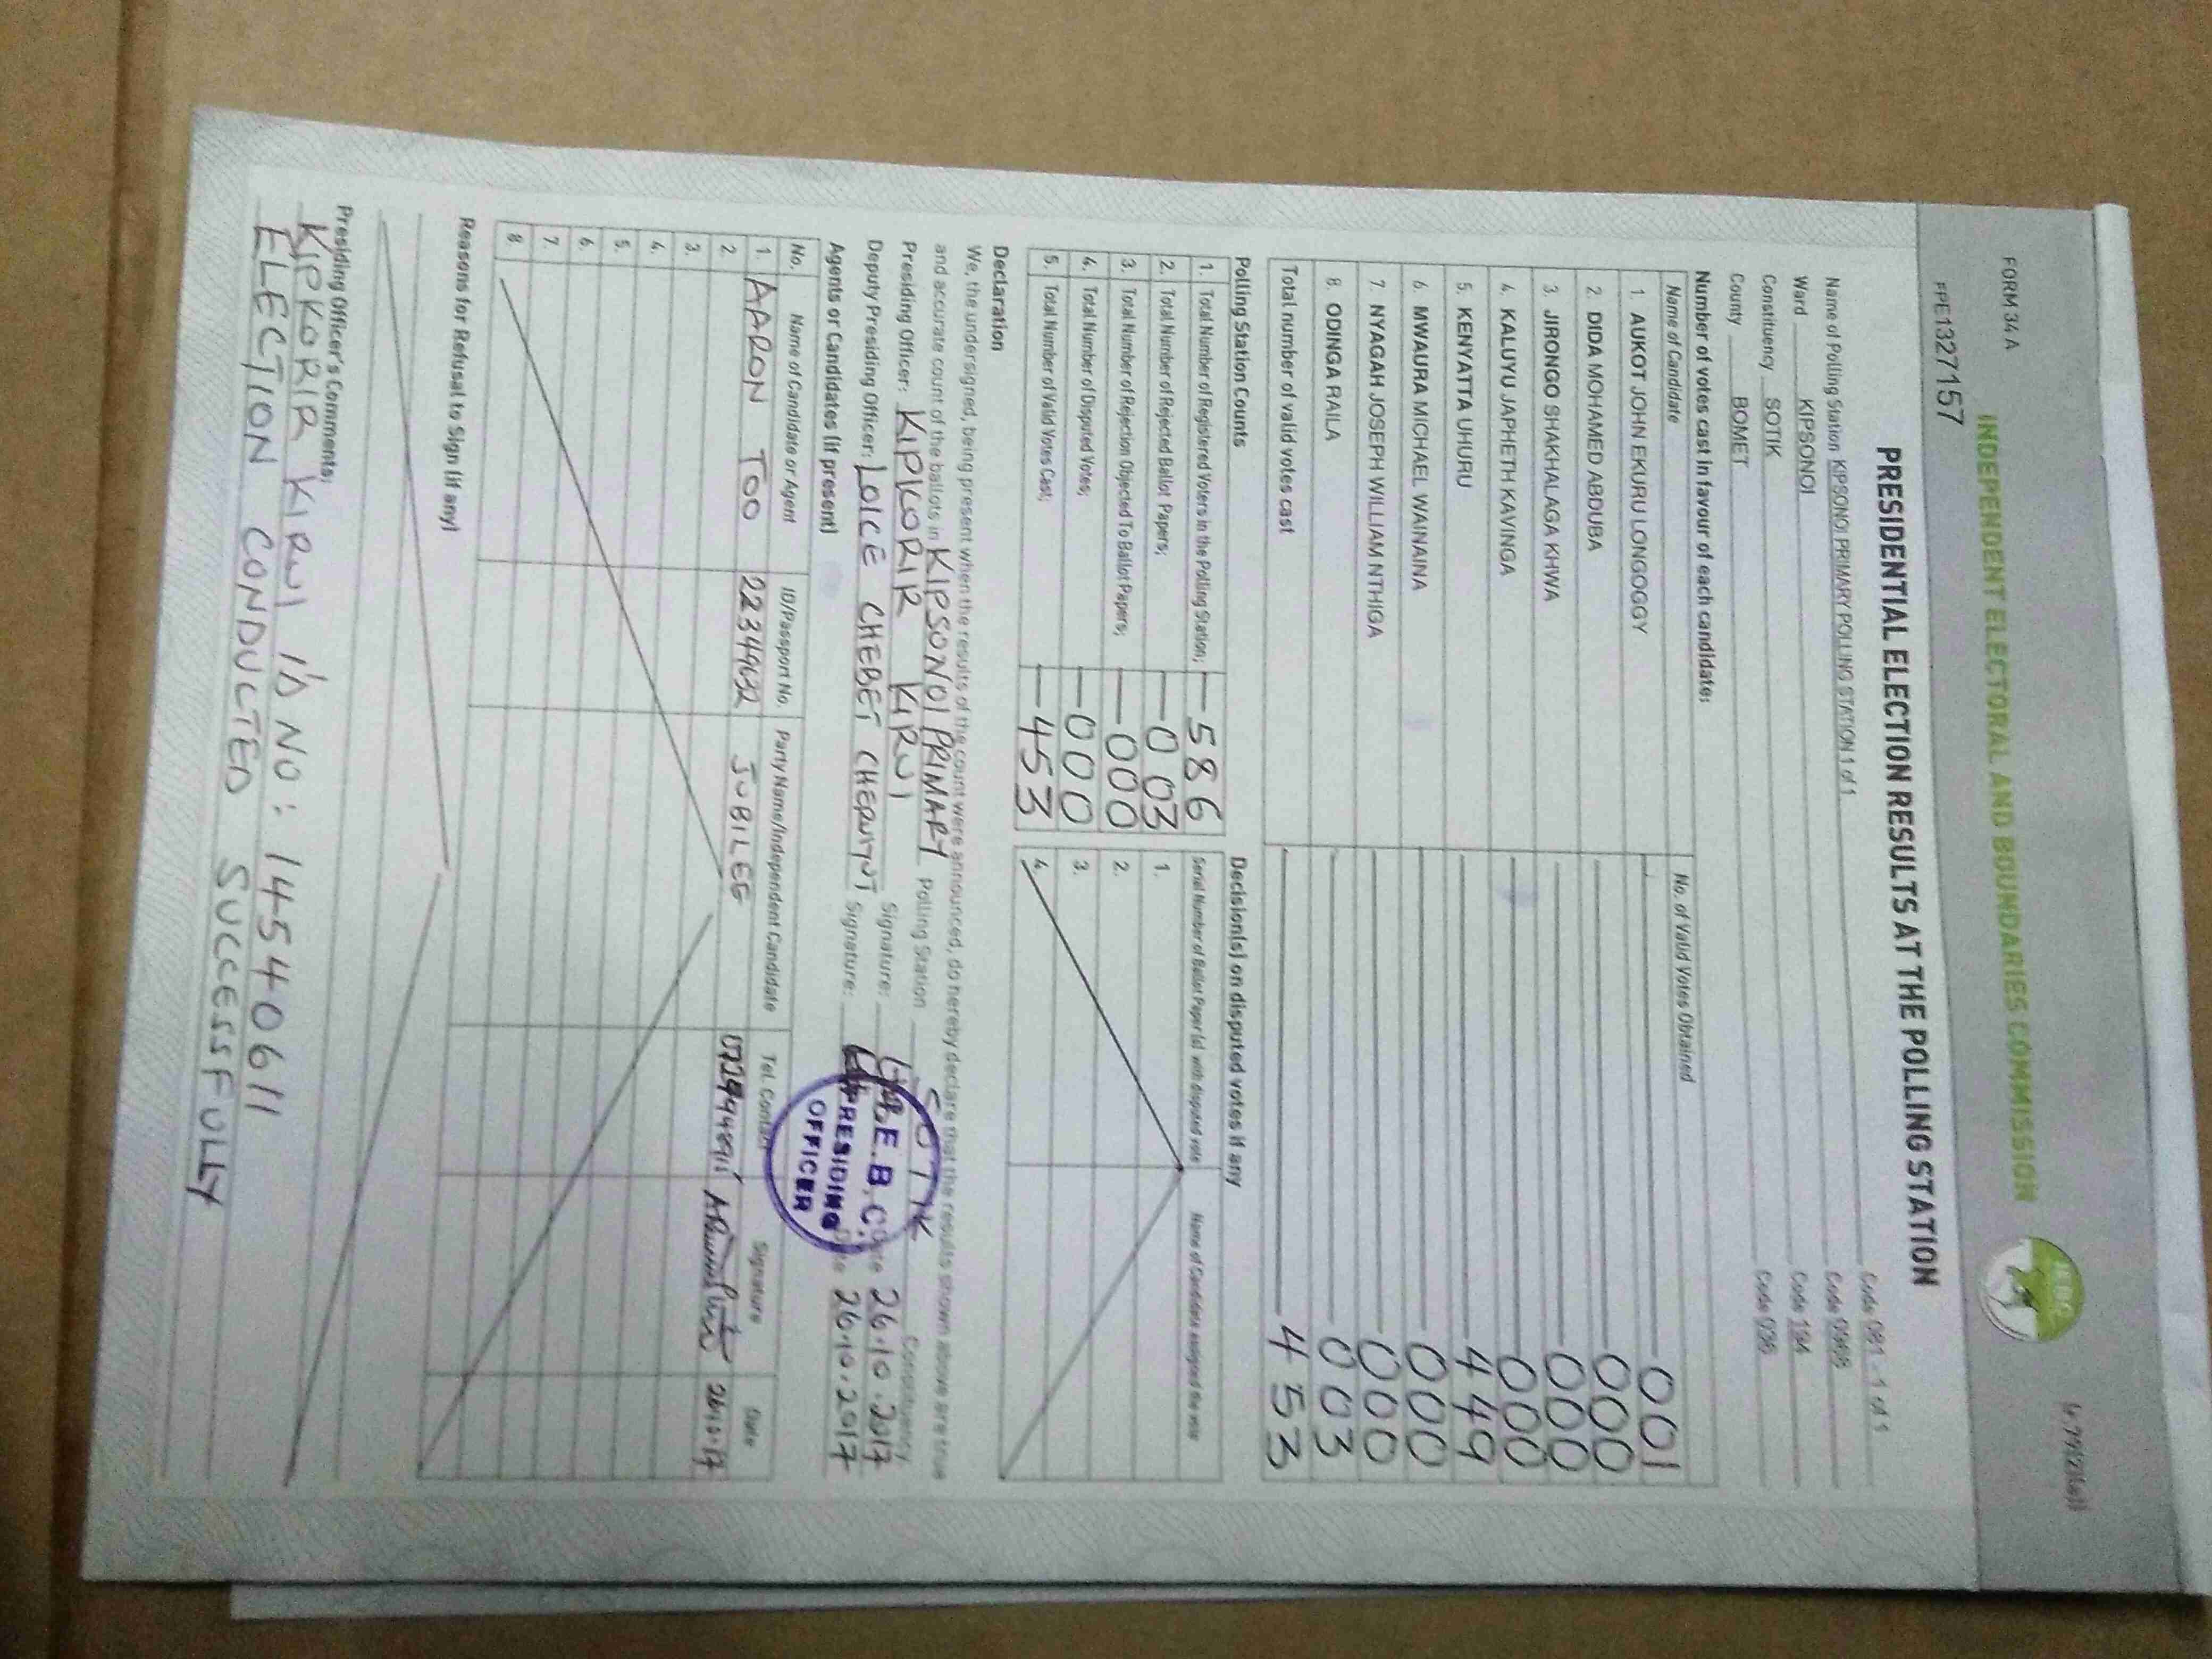 FORM 34A
INDEPENDENT ELECTORAL AND BOUNDARIES COMMISSION
IEBC
FPE1327157
PRESIDENTIAL ELECTION RESULTS AT THE POLLING STATION
Name of Polling Station KIPSONOI PRIMARY POLLING STATION 1 of 1 Code 081 - 1 of 1
Ward KIPSONOI
Constituency SOTIK Code 194
County BOMET Code 036
Number of votes cast in favour of each candidate:
Name of Candidate No. of Valid Votes Obtained
1. AUKOT JOHN EKURU LONGOGGY 001
2. DIDA MOHAMED ABDUBA 000
3. JIRONGO SHAKHALAGA KHWA 000
4. KALUYU JAPHETH KAVINGA 000
5. KENYATTA UHURU 449
6. MWAURA MICHAEL WAINAINA 000
7. NYAGAH JOSEPH WILLIAM NTHIGA 000
8. ODINGA RAILA 003
Total number of valid votes cast 453
Polling Station Counts
1. Total Number of Registered Voters in the Polling Station; 586
2. Total Number of Rejected Ballot Papers; 003
3. Total Number of Rejection Objected To Ballot Papers; 000
4. Total Number of Disputed Votes; 000
5. Total Number of Valid Votes Cast; 453
Decision(s) on disputed votes if any
Serial Number of Ballot Paper (s) with disputed vote Name of Candidate assigned the vote
1.
2.
3.
4.
Declaration
We, the undersigned, being present when the results of the count were announced, do hereby declare that the results shown above are true
and accurate count of the ballots in KIPSONOI PRIMARY Polling Station SOTIK Constituency
Presiding Officer: KIPKORIR KIRUI Signature: Date 26.10.2017
Deputy Presiding Officer: LOICE CHEBET CHERUIYOT Signature: Date 26.10.2017
I.E.B.C.
PRESIDING
OFFICER
Agents or Candidates (if present)
No. Name of Candidate or Agent ID/Passport No. Party Name/Independent Candidate Tel. Contact Signature Date
1. AARON TOO 22349632 JUBILEE 26.10.17
2.
3.
4.
5.
6.
7.
8.
Reasons for Refusal to Sign (if any)
Presiding Officer's Comments;
KIPKORIR KIRUI I/D NO: 14540611
ELECTION CONDUCTED SUCCESSFULLY